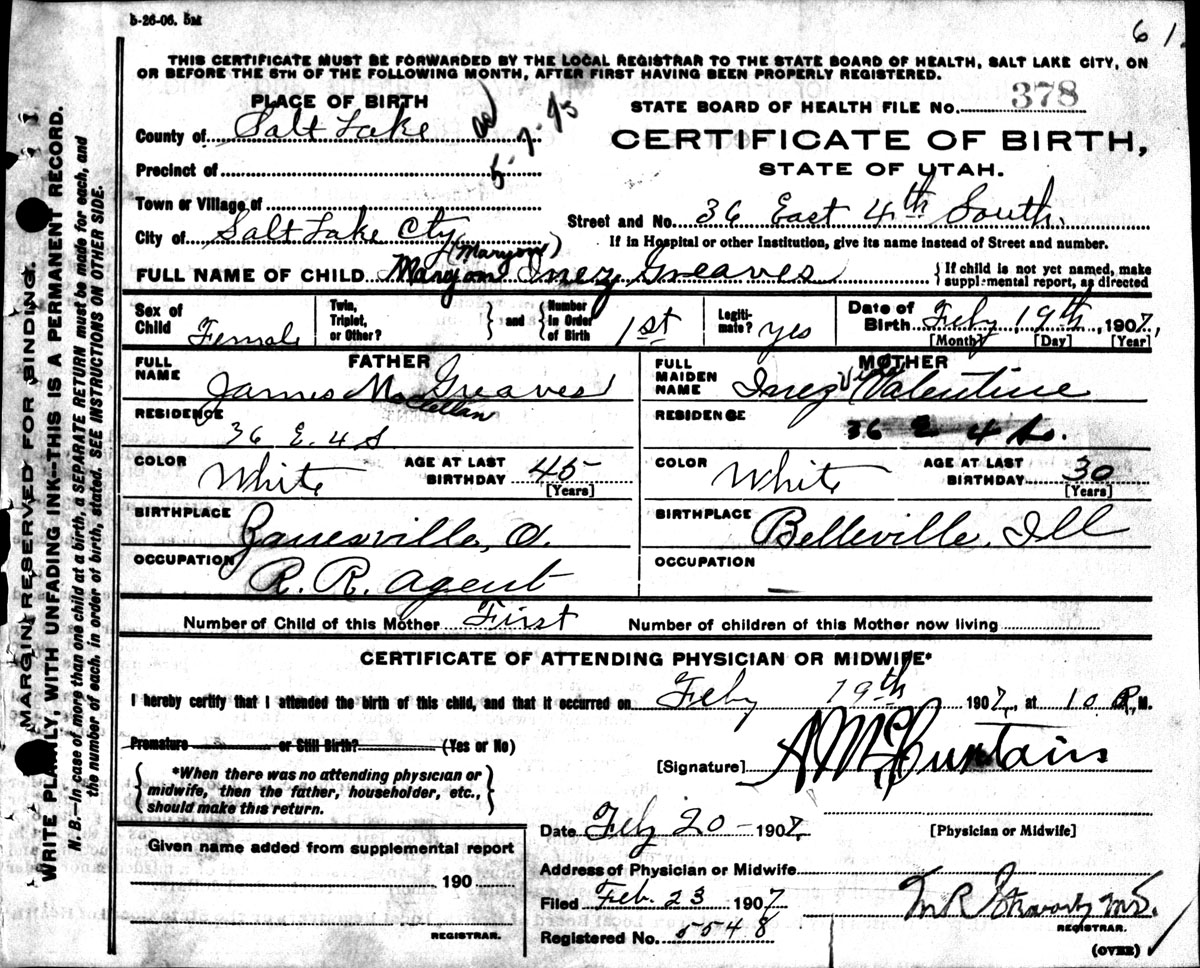 5-26-06. 5M
6 1.
THIS CERTIFICATE MUST BE FORWARDED BY THE LOCAL REGISTRAR TO THE STATE BOARD OF HEALTH, SALT LAKE CITY, ON
OR BEFORE THE 5TH OF THE FOLLOWING MONTH, AFTER FIRST HAVING BEEN PROPERLY REGISTERED.
PLACE OF BIRTH
STATE BOARD OF HEALTH FILE NO. 378
County of Salt Lake
CERTIFICATE OF BIRTH,
Precinct of
STATE OF UTAH.
Town or Village of
Street and No. 36 East 4th South.
City of Salt Lake Cty
If in Hospital or other Institution, give its name instead of Street and number.
(Maryon)
FULL NAME OF CHILD Maryon Inez Greaves
{If child is not yet named, make supplemental report, as directed
Sex of Child Female
Twin, Triplet, or Other? } and { Number In Order of Birth 1st
Legitimate? yes
Date of Birth Feby 19th, 1907,
[Month] [Day] [Year]
FATHER
MOTHER
FULL NAME James Mc Greaves
Clellan
FULL MAIDEN NAME Inez Valentine
RESIDENCE 36 E. 4 S
RESIDENCE 36 E 4 So.
COLOR White AGE AT LAST BIRTHDAY 45 [Years]
COLOR White AGE AT LAST BIRTHDAY 30 [Years]
BIRTHPLACE Zanesville, O.
BIRTHPLACE Belleville, Ill
OCCUPATION R. R. Agent
OCCUPATION
Number of Child of this Mother First Number of children of this Mother now living
CERTIFICATE OF ATTENDING PHYSICIAN OR MIDWIFE*
I hereby certify that I attended the birth of this child, and that it occurred on Feby 19th 1907, at 10 P. M.
Premature or Still Birth? (Yes or No)
[Signature]
*When there was no attending physician or
midwife, then the father, householder, etc.,
should make this return.
Date Feby 20 - 1907,
[Physician or Midwife]
Given name added from supplemental report
190
REGISTRAR.
Address of Physician or Midwife
Filed Feb. 23 1907
REGISTRAR.
Registered No. 5548
(OVER)
MARGIN RESERVED FOR BINDING.
WRITE PLAINLY, WITH UNFADING INK—THIS IS A PERMANENT RECORD.
N. B.—In case of more than one child at a birth, a SEPARATE RETURN must be made for each, and
the number of each, in order of birth, stated. SEE INSTRUCTIONS ON OTHER SIDE.